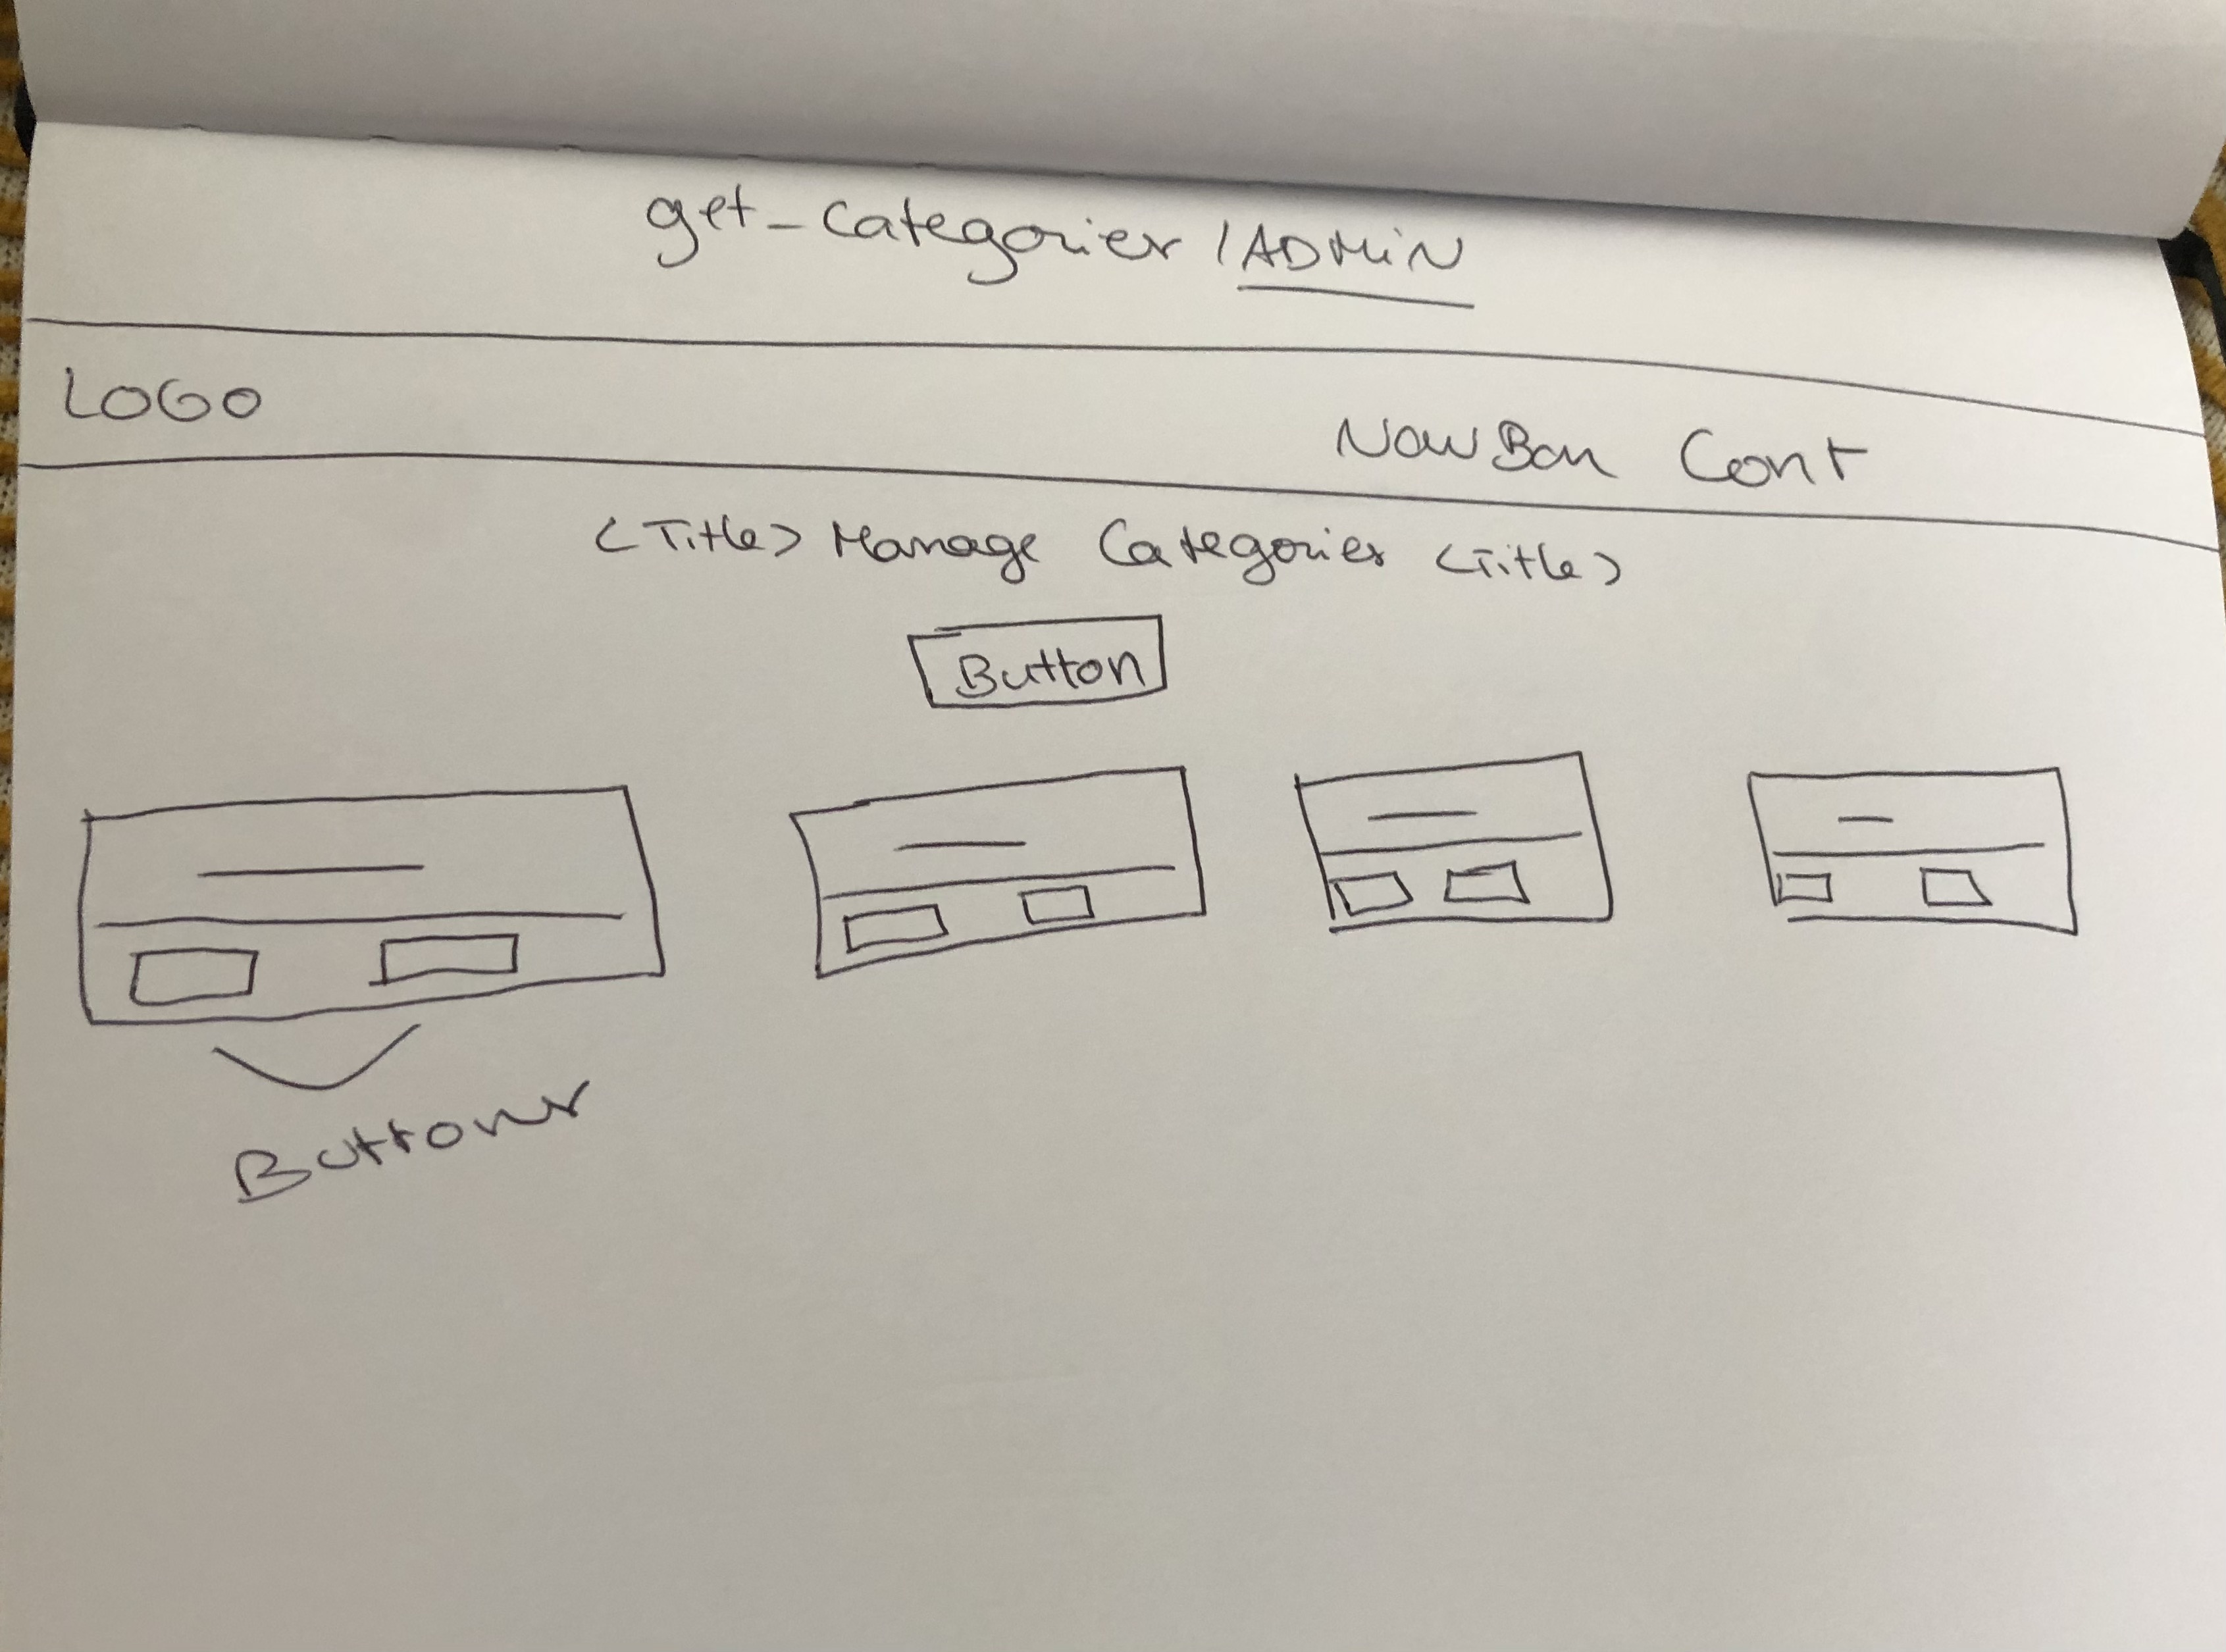 get-categories / ADMIN
LOGO
NavBar Cont
<Title> Manage Categories <Title>
Button
Buttons